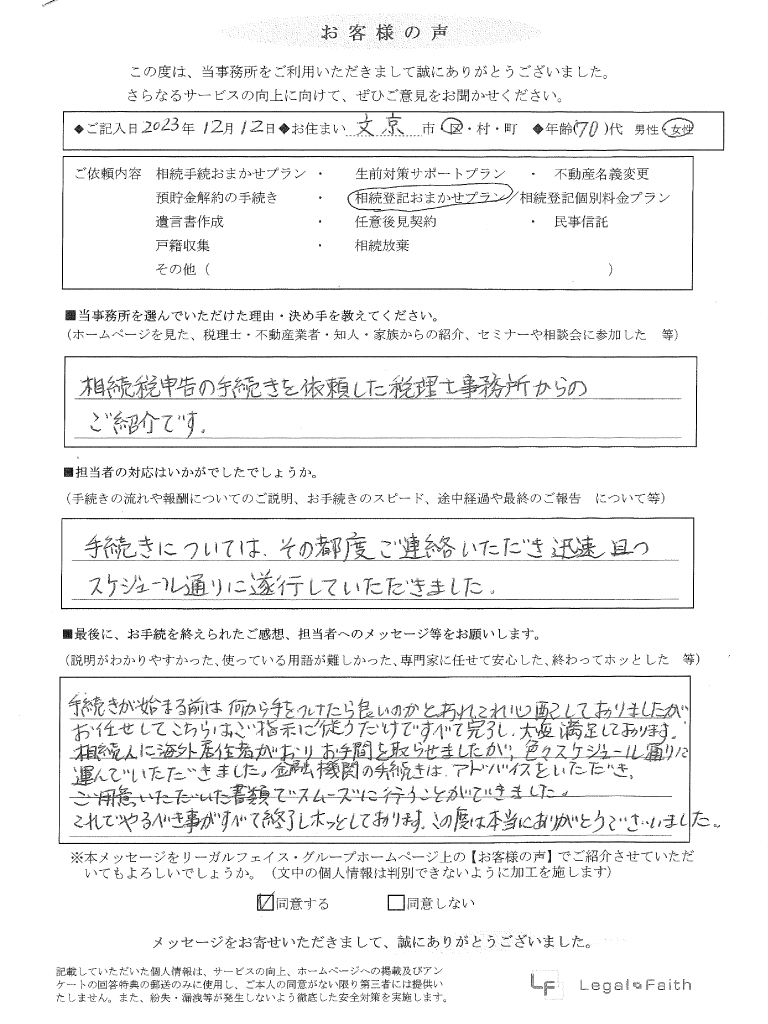 お客様の声
この度は、当事務所をご利用いただきまして誠にありがとうございました。
さらなるサービスの向上に向けて、ぜひご意見をお聞かせください。
◆ご記入日2023年12月12日◆お住まい 文京 市・区・村・町 ◆年齢(70)代 男性・女性
ご依頼内容 相続手続おまかせプラン ・ 生前対策サポートプラン ・ 不動産名義変更
預貯金解約の手続き ・ 相続登記おまかせプラン/相続登記個別料金プラン
遺言書作成 ・ 任意後見契約 ・ 民事信託
戸籍収集 ・ 相続放棄
その他( )
■当事務所を選んでいただけた理由・決め手を教えてください。
(ホームページを見た、税理士・不動産業者・知人・家族からの紹介、セミナーや相談会に参加した 等)
相続税申告の手続きを依頼した税理士事務所からの
ご紹介です。
■担当者の対応はいかがでしたでしょうか。
(手続きの流れや報酬についてのご説明、お手続きのスピード、途中経過や最終のご報告 について等)
手続きについては、その都度ご連絡いただき迅速且つ
スケジュール通りに遂行していただきました。
■最後に、お手続を終えられたご感想、担当者へのメッセージ等をお願いします。
(説明がわかりやすかった、使っている用語が難しかった、専門家に任せて安心した、終わってホッとした 等)
手続きが始まる前は何から手をつけたら良いのかとあれこれ心配しておりましたが
お任せしてこちらはご指示に従うだけですべて完了し、大変満足しております。
相続人に海外居住者がおりお手間を取らせましたが、色々スケジュール通りに
運んでいただきました。金融機関の手続きは、アドバイスをいただき、
ご用意いただいた書類でスムーズに行うことができました。
これでやるべき事がすべて終了しホッとしております。この度は本当にありがとうございました。
※本メッセージをリーガルフェイス・グループホームページ上の【お客様の声】でご紹介させていただ
いてもよろしいでしょうか。(文中の個人情報は判別できないように加工を施します)
☑同意する □同意しない
メッセージをお寄せいただきまして、誠にありがとうございました。
記載していただいた個人情報は、サービスの向上、ホームページへの掲載及びアン
ケートの回答特典の郵送のみに使用し、ご本人の同意がない限り第三者には提供い
たしません。また、紛失・漏洩等が発生しないよう徹底した安全対策を実施します。
LF Legal Faith